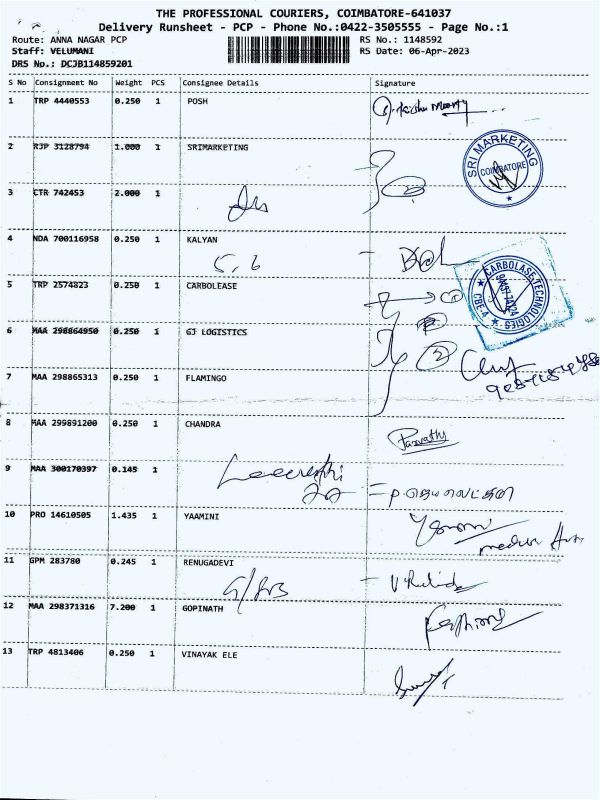 THE PROFESSIONAL COURIERS, COIMBATORE-641037
Delivery Runsheet - PCP - Phone No.:0422-3505555 - Page No.:1
Route: ANNA NAGAR PCP RS No.: 1148592
Staff: VELUMANI RS Date: 06-Apr-2023
DRS No.: DCJB114859201
S No Consignment No Weight PCS Consignee Details Signature
1 TRP 4440553 0.250 1 POSH
2 RJP 3128794 1.000 1 SRIMARKETING
SRI MARKETING COIMBATORE
3 CTR 742453 2.000 1
4 NDA 700116958 0.250 1 KALYAN
5 TRP 2574823 0.250 1 CARBOLEASE
CARBOLASE TECHNOLOGIES CBE-4
6 MAA 298864950 0.250 1 GJ LOGISTICS
2
7 MAA 298865313 0.250 1 FLAMINGO
8 MAA 299891200 0.250 1 CHANDRA
Parvathy
9 MAA 300170397 0.145 1
10 PRO 14610505 1.435 1 YAAMINI
11 GPM 283780 0.245 1 RENUGADEVI
12 MAA 298371316 7.200 1 GOPINATH
13 TRP 4813406 0.250 1 VINAYAK ELE